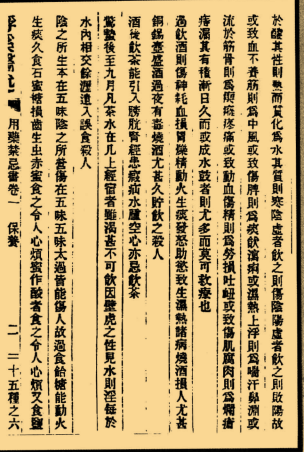 於醲其性則熱而質化為水其質則寒陰虛者飲之則傷陰陽虛者飲之則敗陽故
或致血不養筋則為中風或致傷脾則為痰飲瀉痢或濕熱上浮則為喘汗鼻淵或
流於筋骨則為瘈瘲疼痛或致動血傷精則為勞損吐衄或致傷肌腐肉則為爛瘡
痔漏其有積漸日久而或成水鼓者則尤多而莫可救療也
過飲酒則傷神耗血損胃爍精動火生痰發怒助慾致生濕熱諸病燒酒損人尤甚
銅錫壺盛酒過夜有毒燒酒尤甚久貯飲之殺人
酒後飲茶能引入膀胱腎經患瘕疝水腫空心亦忌飲茶
驚蟄後至九月凡茶水在几上經宿者雖渴甚不可飲因壁虎之性見水則淫每於
水內相交餘瀝遺入誤食殺人
陰之所生本在五味陰之所營傷在五味五味太過皆能傷人故過食飴糖能動火
生痰久食石蜜糖損齒生虫赤蜜食之令人心煩蜜作酸者食之令人心煩又食鹽
用藥禁忌書卷一 保養 二 二十五種之六